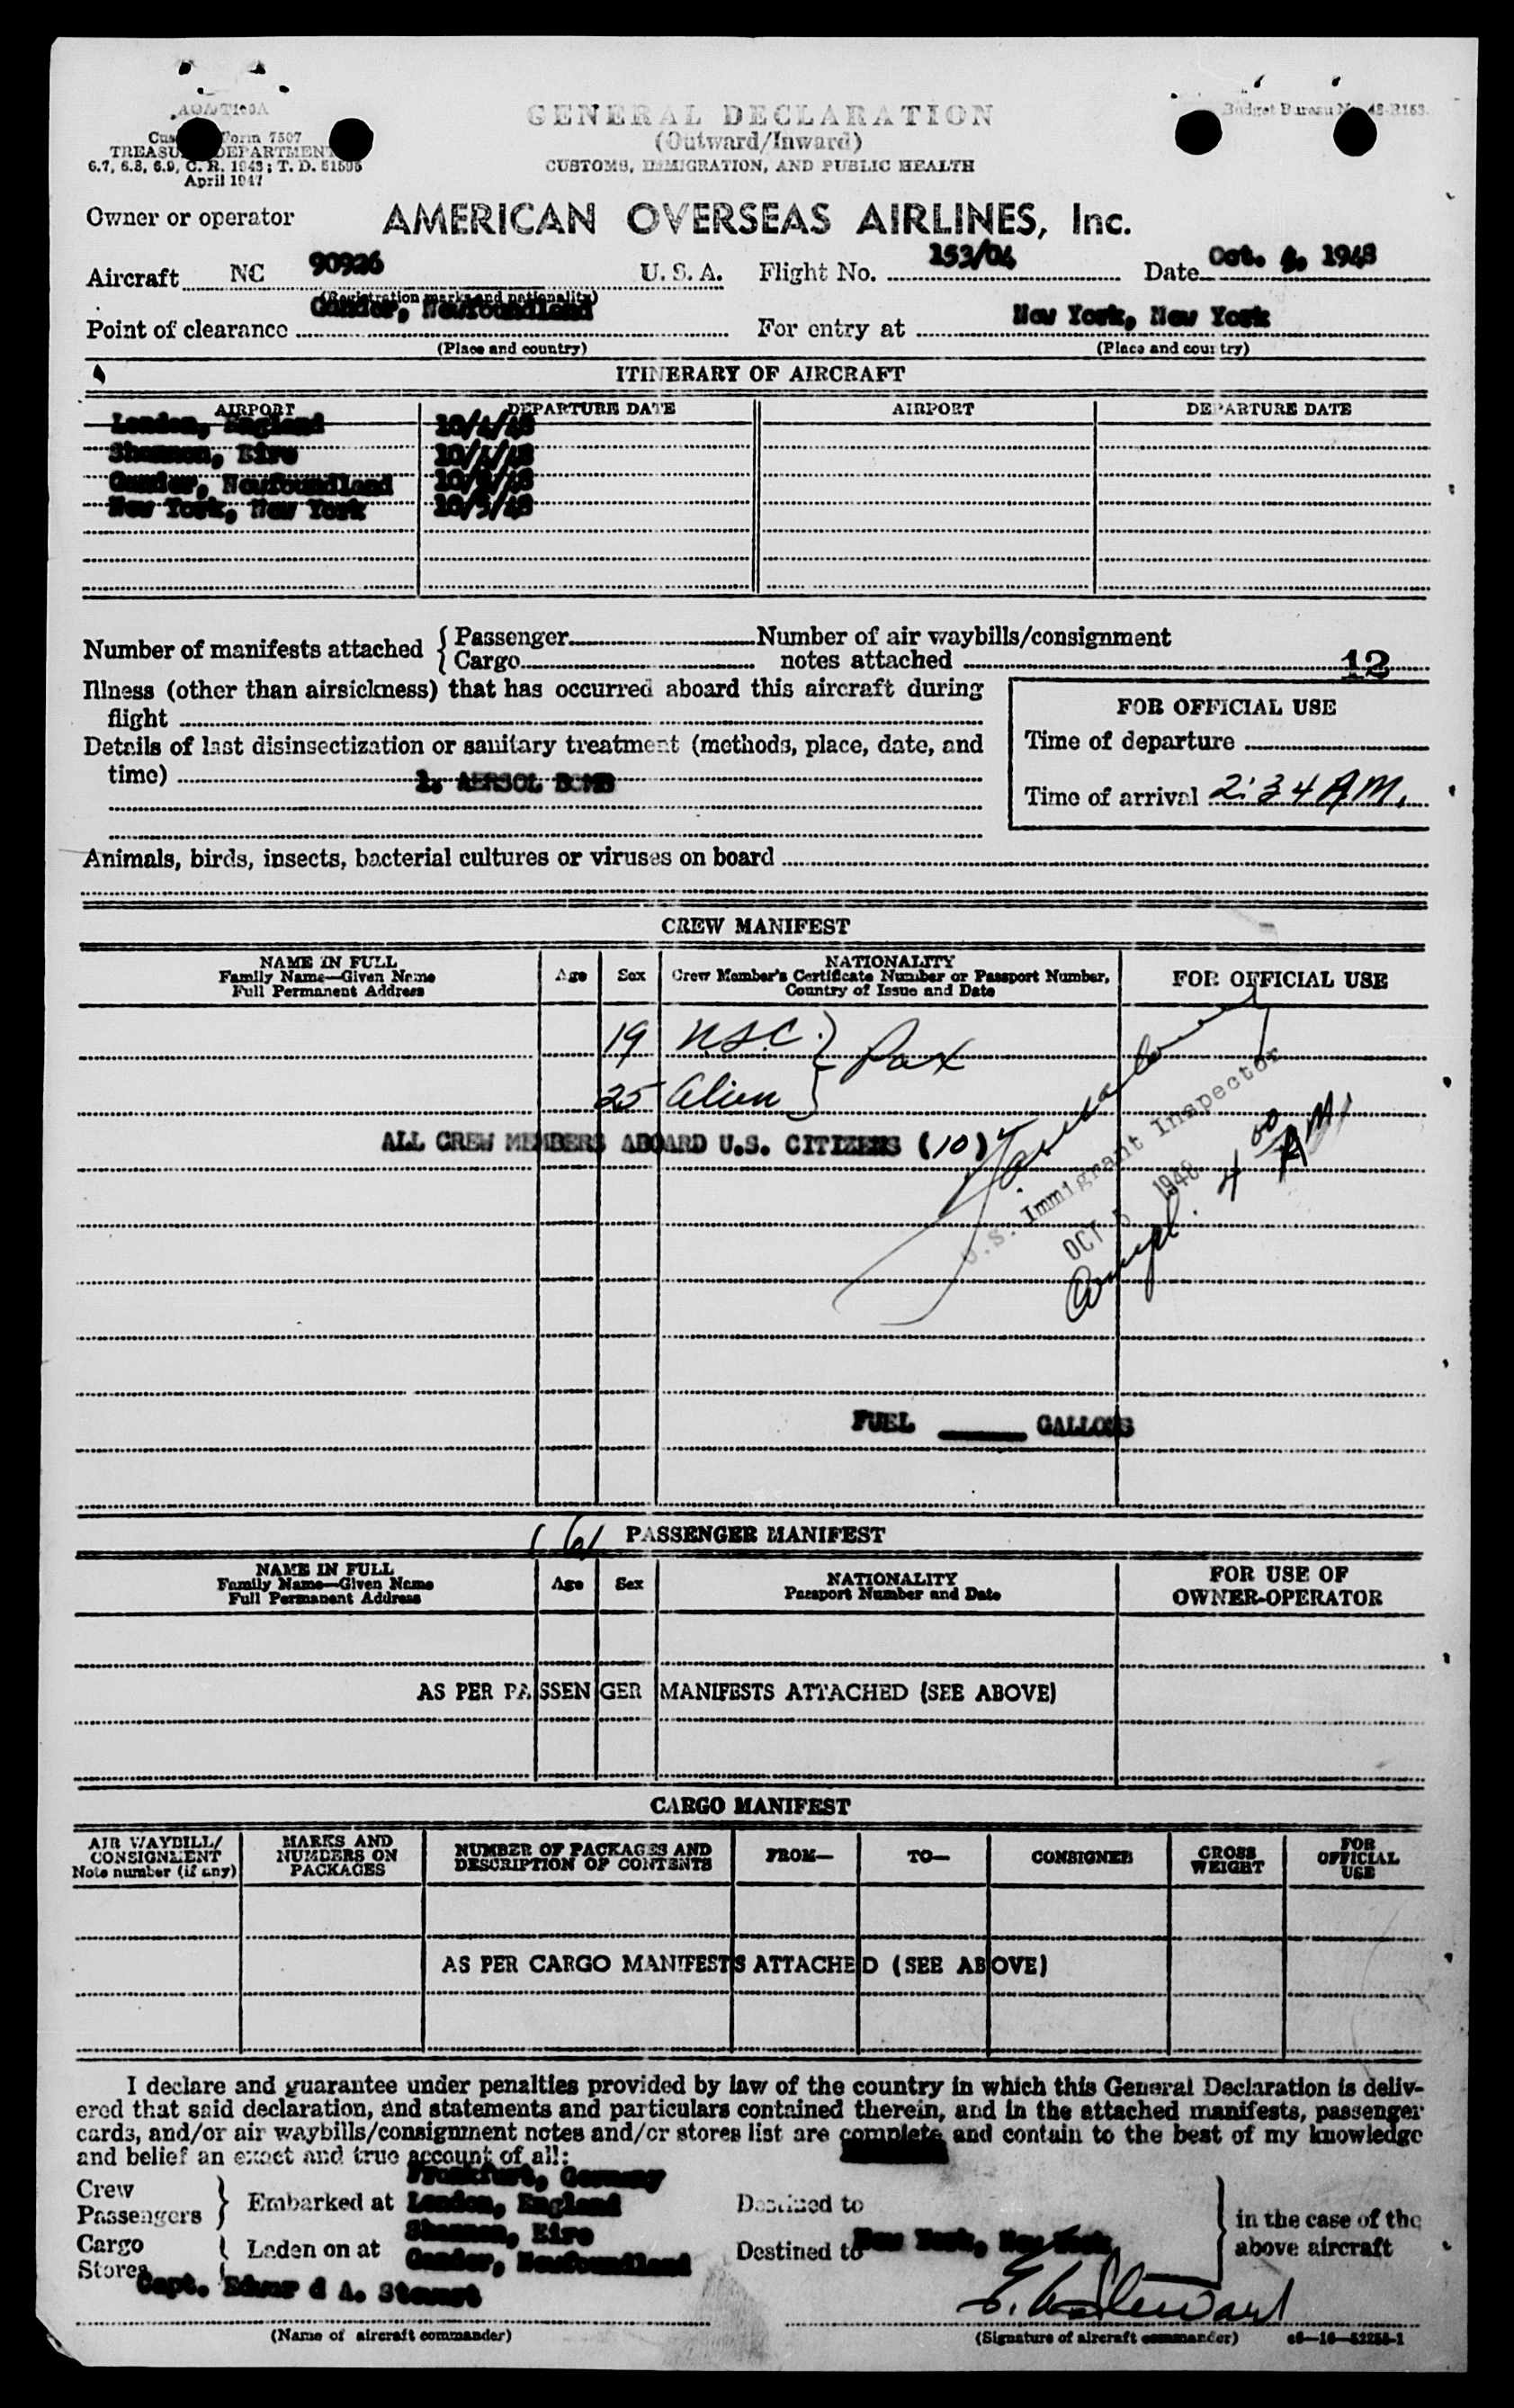 GENERAL DECLARATION
(Outward/Inward)
CUSTOMS, IMMIGRATION, AND PUBLIC HEALTH
Form 7507
TREASURY DEPARTMENT
6.7, 6.8, 6.9, C. R. 1943; T. D. 51595
April 1947
Budget Bureau No. 48-R153.
Owner or operator AMERICAN OVERSEAS AIRLINES, Inc.
Aircraft NC 90926 U. S. A. Flight No. 153/04 Date Oct. 4, 1948
(Registration marks and nationality)
Point of clearance Gander, Newfoundland For entry at New York, New York
(Place and country) (Place and country)
ITINERARY OF AIRCRAFT
AIRPORT DEPARTURE DATE AIRPORT DEPARTURE DATE
London, England 10/4/48
Shannon, Eire 10/4/48
Gander, Newfoundland
New York, New York 10/5/48
Number of manifests attached { Passenger Number of air waybills/consignment
Cargo notes attached 12
Illness (other than airsickness) that has occurred aboard this aircraft during
flight
FOR OFFICIAL USE
Details of last disinsectization or sanitary treatment (methods, place, date, and
time) 1. AERSOL BOMB
Time of departure
Time of arrival 2:34 A.M.
Animals, birds, insects, bacterial cultures or viruses on board
CREW MANIFEST
NAME IN FULL
Family Name—Given Name
Full Permanent Address
Age
Sex
NATIONALITY
Crew Member's Certificate Number or Passport Number,
Country of Issue and Date
FOR OFFICIAL USE
19 U.S.C. } Pax
25 Alien
ALL CREW MEMBERS ABOARD U.S. CITIZENS (10)
U.S. Immigrant Inspector
OCT 5 1948
Compl. 4 00 AM
FUEL ______ GALLONS
PASSENGER MANIFEST
NAME IN FULL
Family Name—Given Name
Full Permanent Address
Age
Sex
NATIONALITY
Passport Number and Date
FOR USE OF
OWNER-OPERATOR
AS PER PASSENGER MANIFESTS ATTACHED (SEE ABOVE)
CARGO MANIFEST
AIR WAYBILL/
CONSIGNMENT
Note number (if any)
MARKS AND
NUMBERS ON
PACKAGES
NUMBER OF PACKAGES AND
DESCRIPTION OF CONTENTS
FROM—
TO—
CONSIGNEE
GROSS
WEIGHT
FOR
OFFICIAL
USE
AS PER CARGO MANIFESTS ATTACHED (SEE ABOVE)
I declare and guarantee under penalties provided by law of the country in which this General Declaration is deliv-
ered that said declaration, and statements and particulars contained therein, and in the attached manifests, passenger
cards, and/or air waybills/consignment notes and/or stores list are complete and contain to the best of my knowledge
and belief an exact and true account of all:
Frankfurt, Germany
Crew
Passengers } Embarked at London, England Destined to
Shannon, Eire
in the case of the
above aircraft
Cargo
Stores { Laden on at Gander, Newfoundland Destined to New York, New York
Capt. Edwar d A. Stewart E. A. Stewart
(Name of aircraft commander) (Signature of aircraft commander) c6—16—52255-1